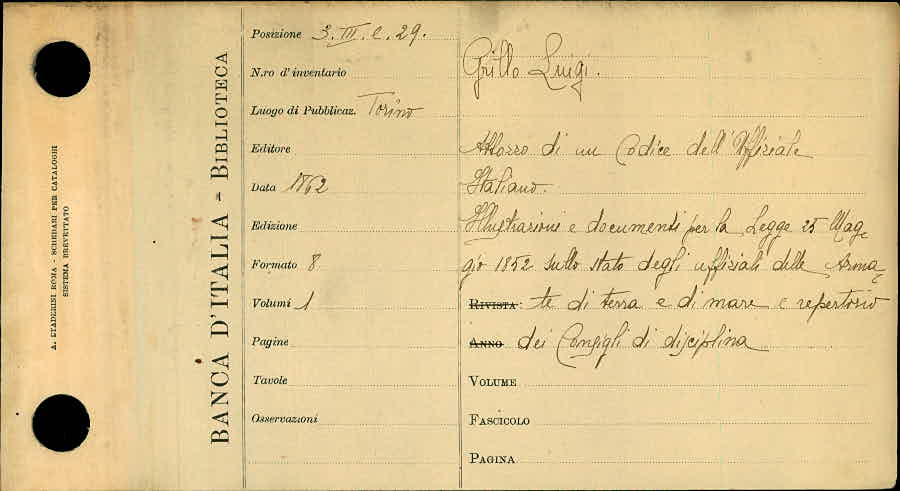 A. STADERINI ROMA - SCHEDARI PER CATALOGHI
SISTEMA BREVETTATO
BANCA D'ITALIA - BIBLIOTECA
Posizione 3. III. e. 29.
N.ro d'inventario
Luogo di Pubblicaz. Torino
Editore
Data 1862
Edizione
Formato 8
Volumi 1
Pagine
Tavole
Osservazioni
Grillo Luigi.
Abbozzo di un Codice dell'Uffiziale
Italiano.
Illustrazioni e documenti per la Legge 25 Mag=
gio 1852 sullo stato degli uffiziali delle Arma=
RIVISTA: te di terra e di mare e repertorio
ANNO dei Consigli di disciplina
VOLUME
FASCICOLO
PAGINA